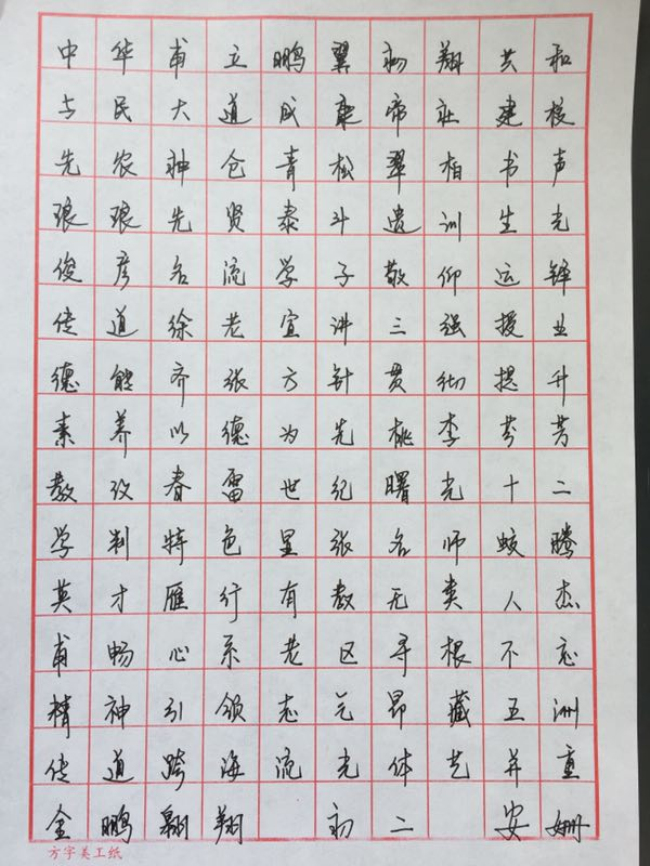 中华甫立鹏翼初翔共和
与民大道成康帝社建校
先农神仓青松翠柏书声
琅琅先贤泰斗遗训生光
俊彦名流学子敬仰远铎
传道徐老宣讲三强授业
德能齐张方针贯彻提升
素养以德为先桃李芬芳
教改春雷世纪曙光十二
学制特色呈张名师蛟腾
英才雁行有教无类人杰
甫畅心系老区寻根不忘
精神引领志气昂藏五洲
传道跨海流光体艺并重
金鹏翱翔 初二 安姗
方字美工纸